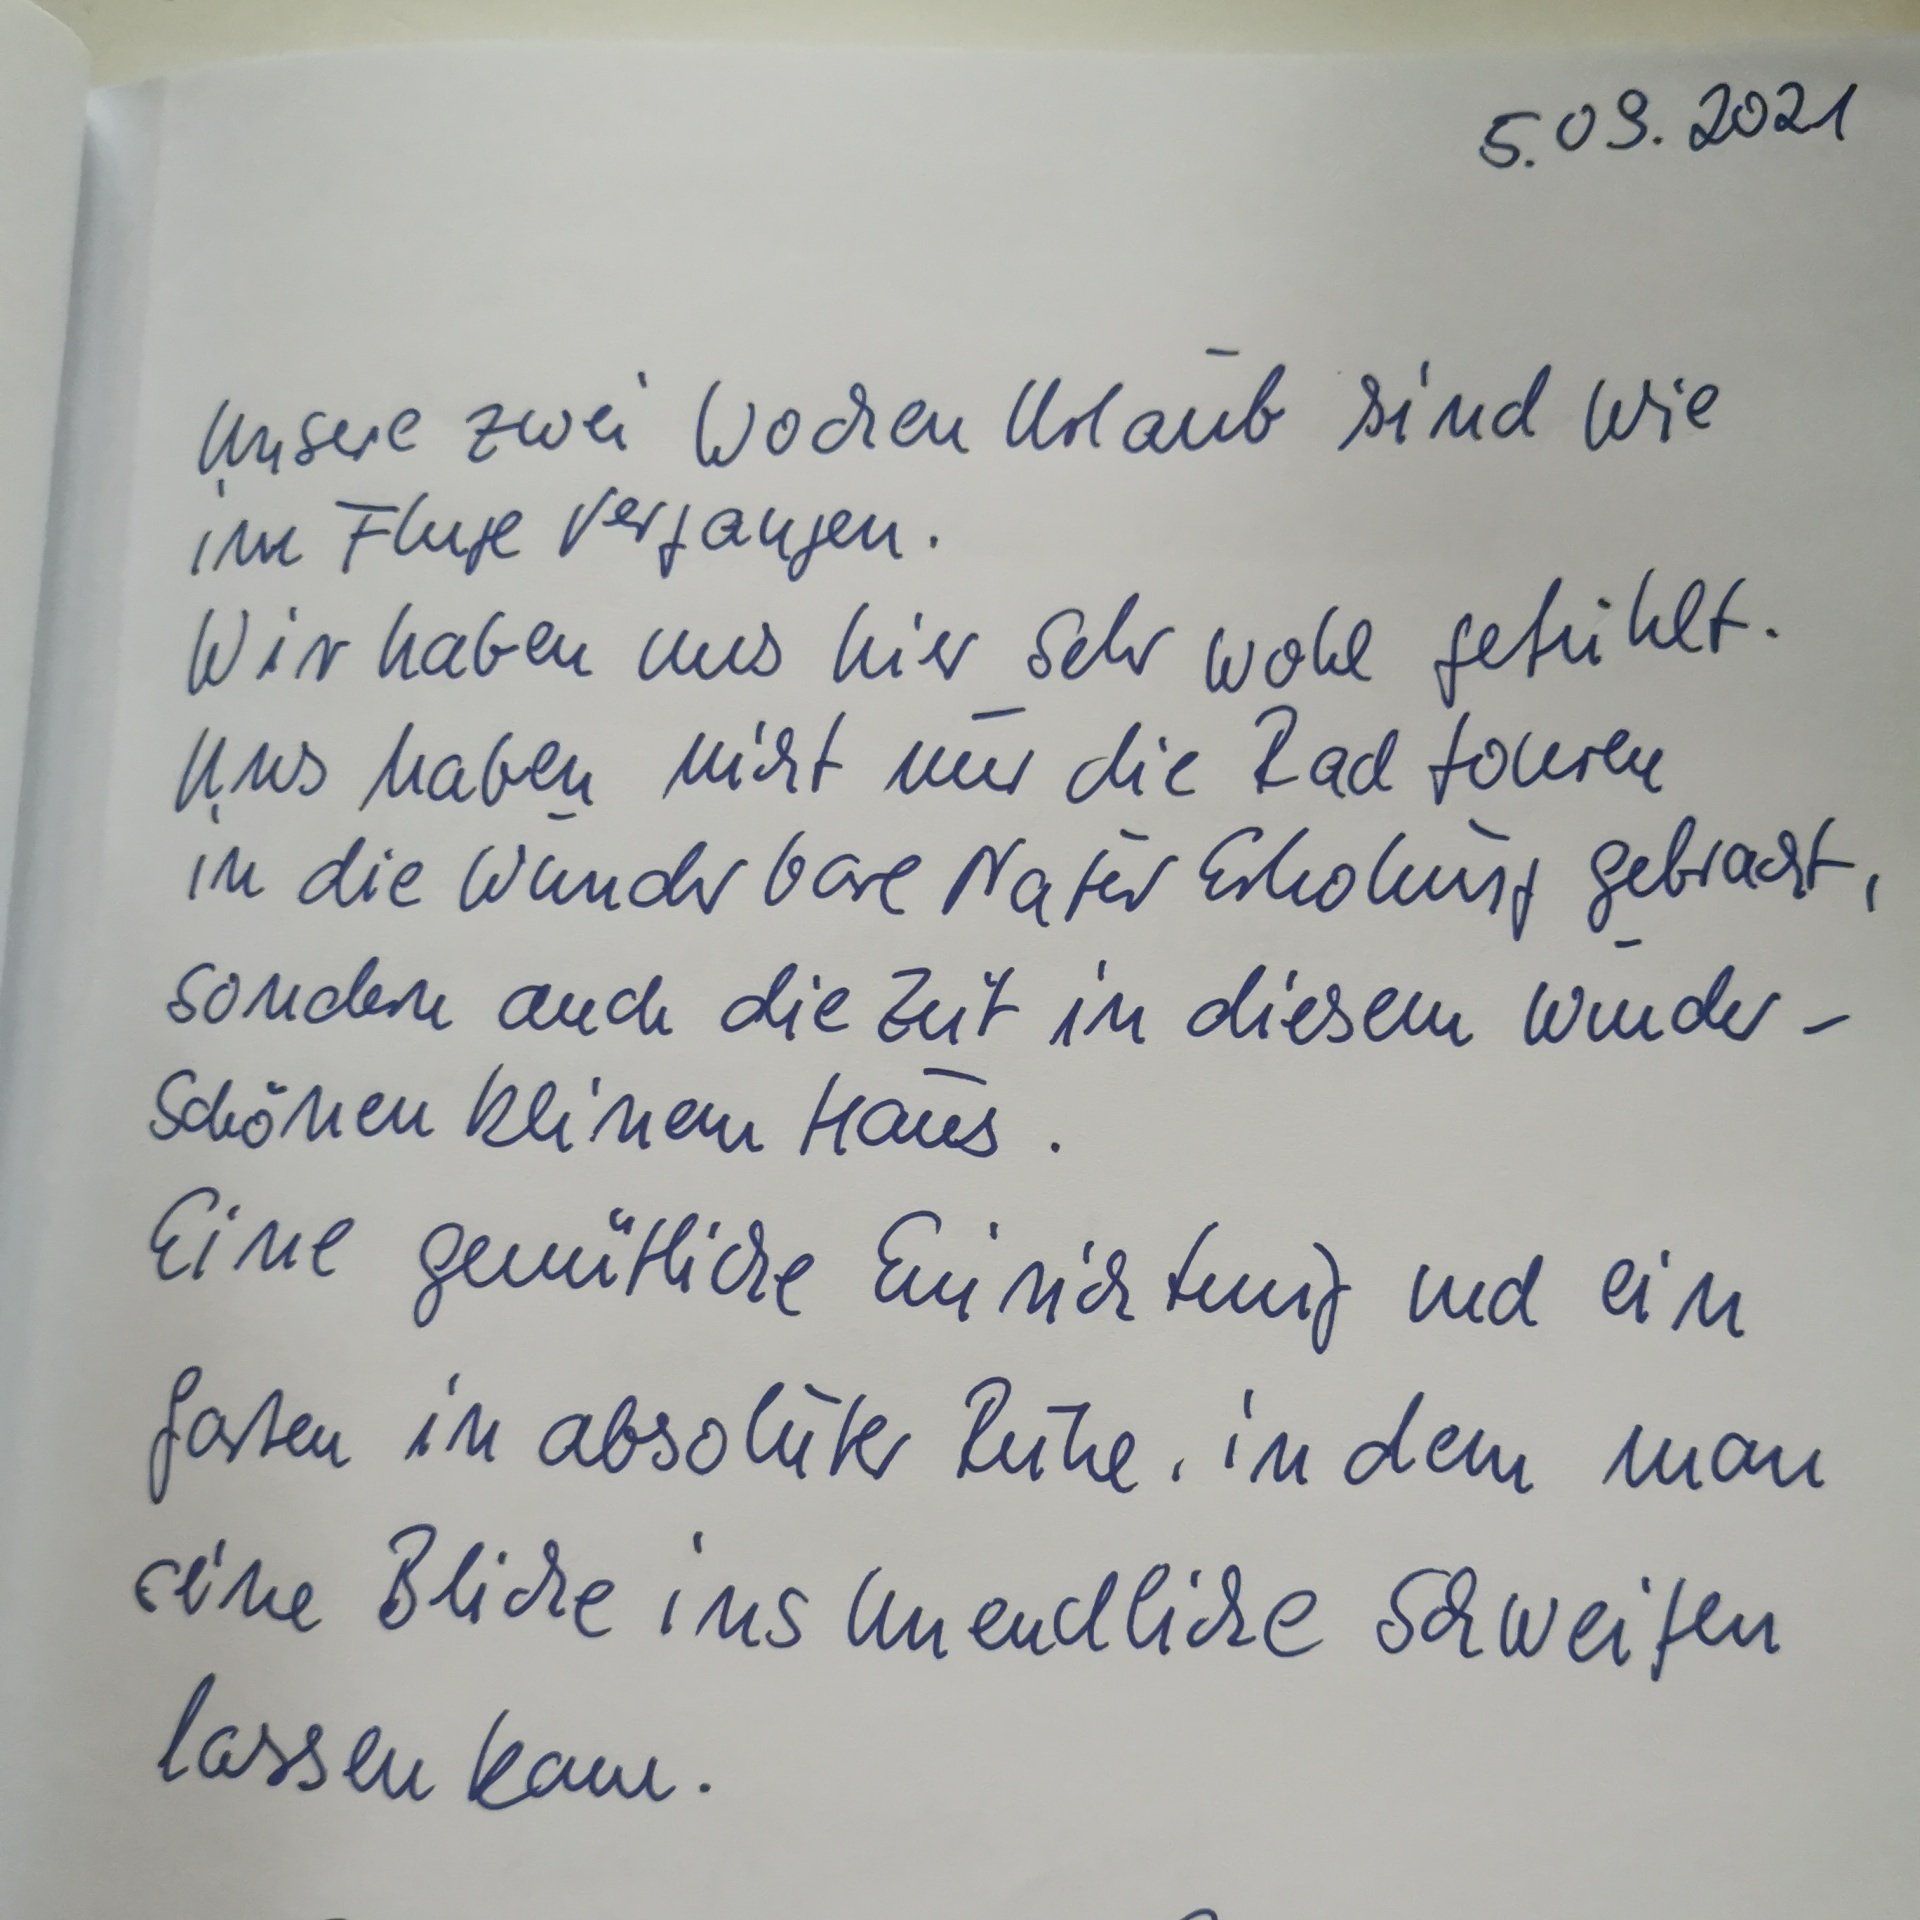 5.09.2021
Unsere zwei Wochen Urlaub sind wie
im Fluge vergangen.
Wir haben uns hier sehr wohl gefühlt.
Uns haben nicht nur die Radtouren
in die wunderbare Natur Erholung gebracht,
sondern auch die Zeit in diesem wunder-
schönen kleinem Haus.
Eine gemütliche Einrichtung und ein
Garten in absoluter Ruhe, in dem man
seine Blicke ins Unendliche schweifen
lassen kann.